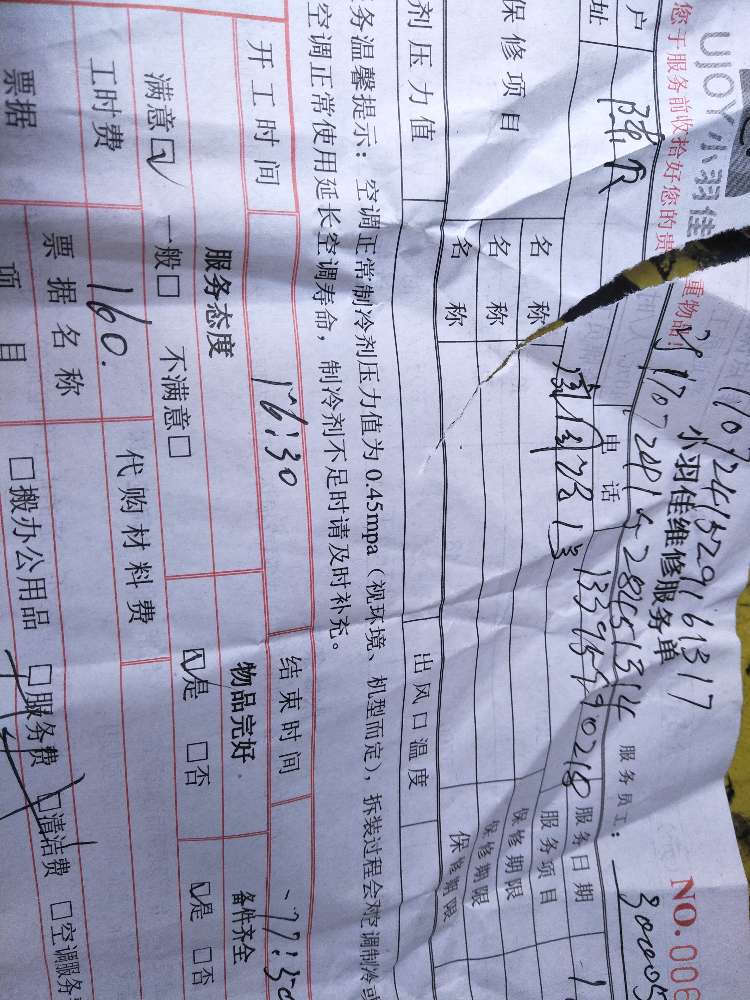 UJOY小羽佳
NO.006
小羽佳维修服务单
您于服务前收拾好您的贵重物品!
服务员工:
30005
户
电话
服务日期
13395990218
址
服务项目
保修项目
名称
保修期限
名称
保修期限
名称
保修期限
剂压力值
出风口温度
务温馨提示:空调正常制冷剂压力值为0.45mpa(视环境、机型而定),拆装过程会对空调制冷或
空调正常使用延长空调寿命,制冷剂不足时请及时补充。
开工时间
16:30
结束时间
17:30
服务态度
物品完好
备件齐全
满意☑ 一般□ 不满意□
☑是 □否
☑是 □否
工时费
160.
代购材料费
票据
票据名称
项目
□搬办公用品 □服务费 ☑清洁费 □空调服务